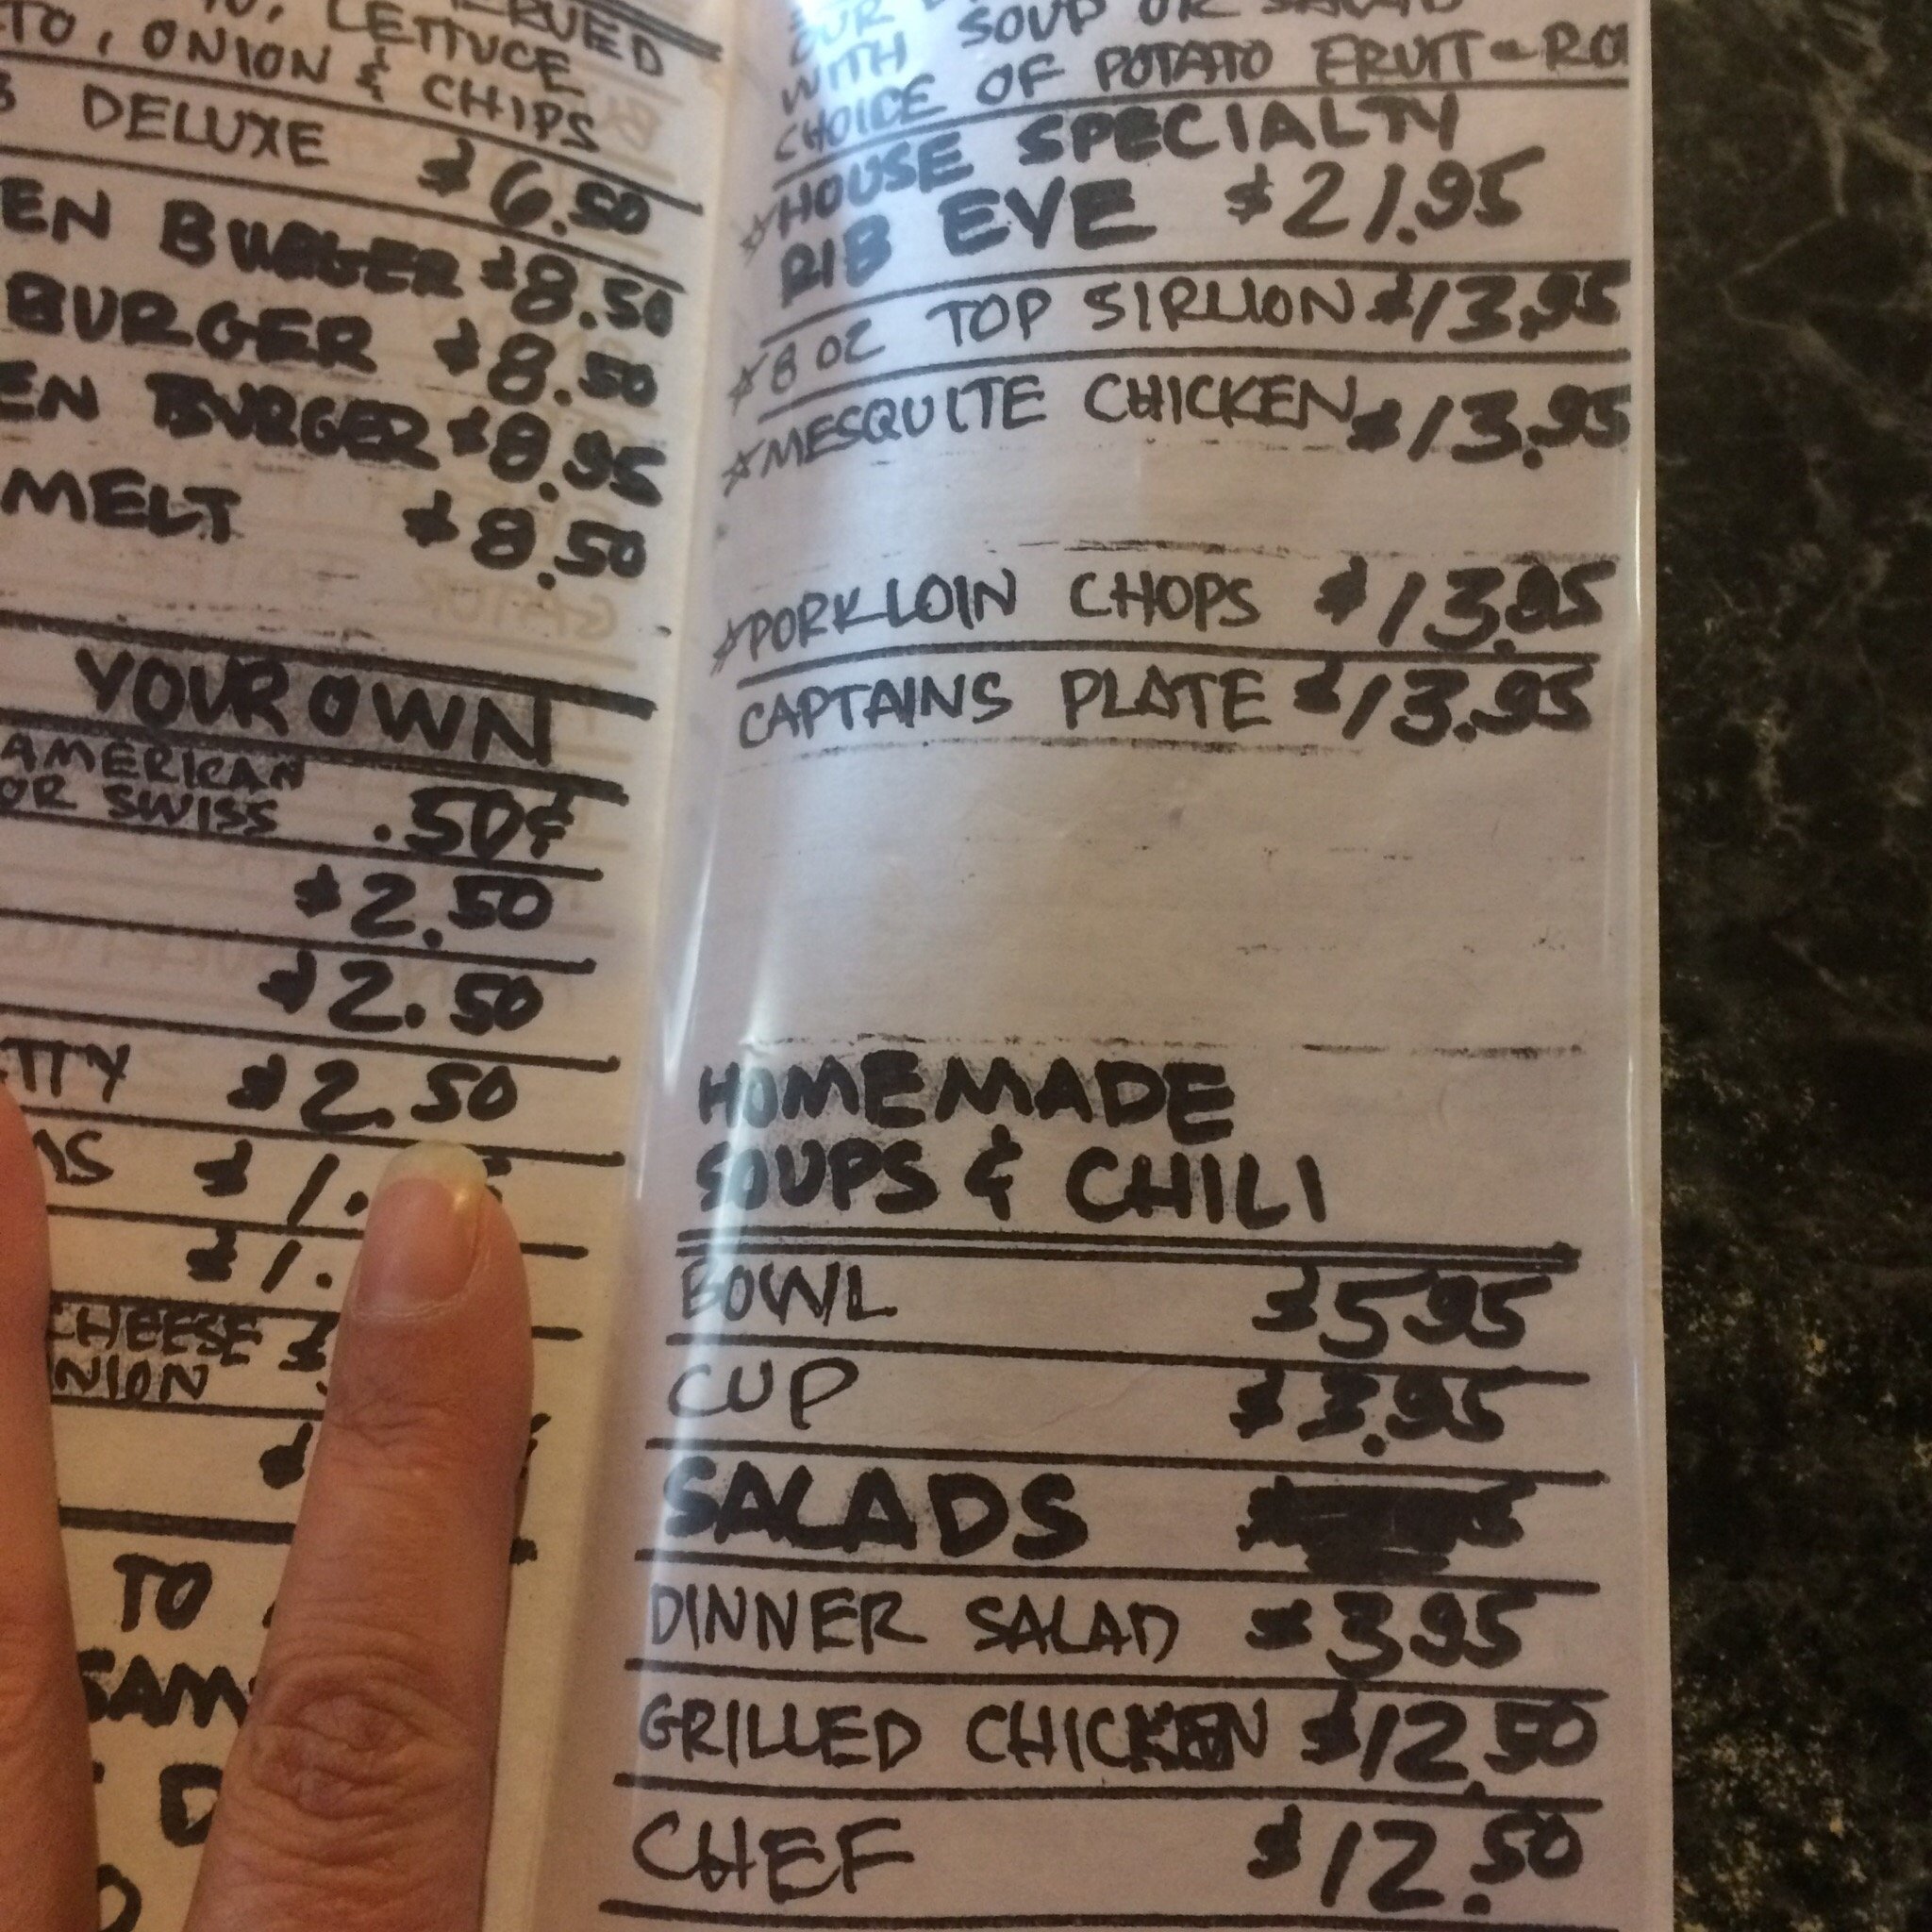 LETTUCE
, ONION & CHIPS
DELUXE $6.50
BURGER $8.50
BURGER $8.50
BURGER $8.95
MELT $8.50
YOUR OWN
AMERICAN
OR SWISS .50¢
$2.50
$2.50
$2.50
$1.
$1.
CHEESE
TO
WITH SOUP OR SALAD
CHOICE OF POTATO FRUIT
☆HOUSE SPECIALTY
RIB EYE $21.95
☆8 OZ TOP SIRLION $13.95
☆MESQUITE CHICKEN $13.95
☆PORK LOIN CHOPS $13.95
CAPTAINS PLATE $13.95
HOMEMADE
SOUPS & CHILI
BOWL $5.95
CUP $3.95
SALADS
DINNER SALAD $3.95
GRILLED CHICKEN $12.50
CHEF $12.50